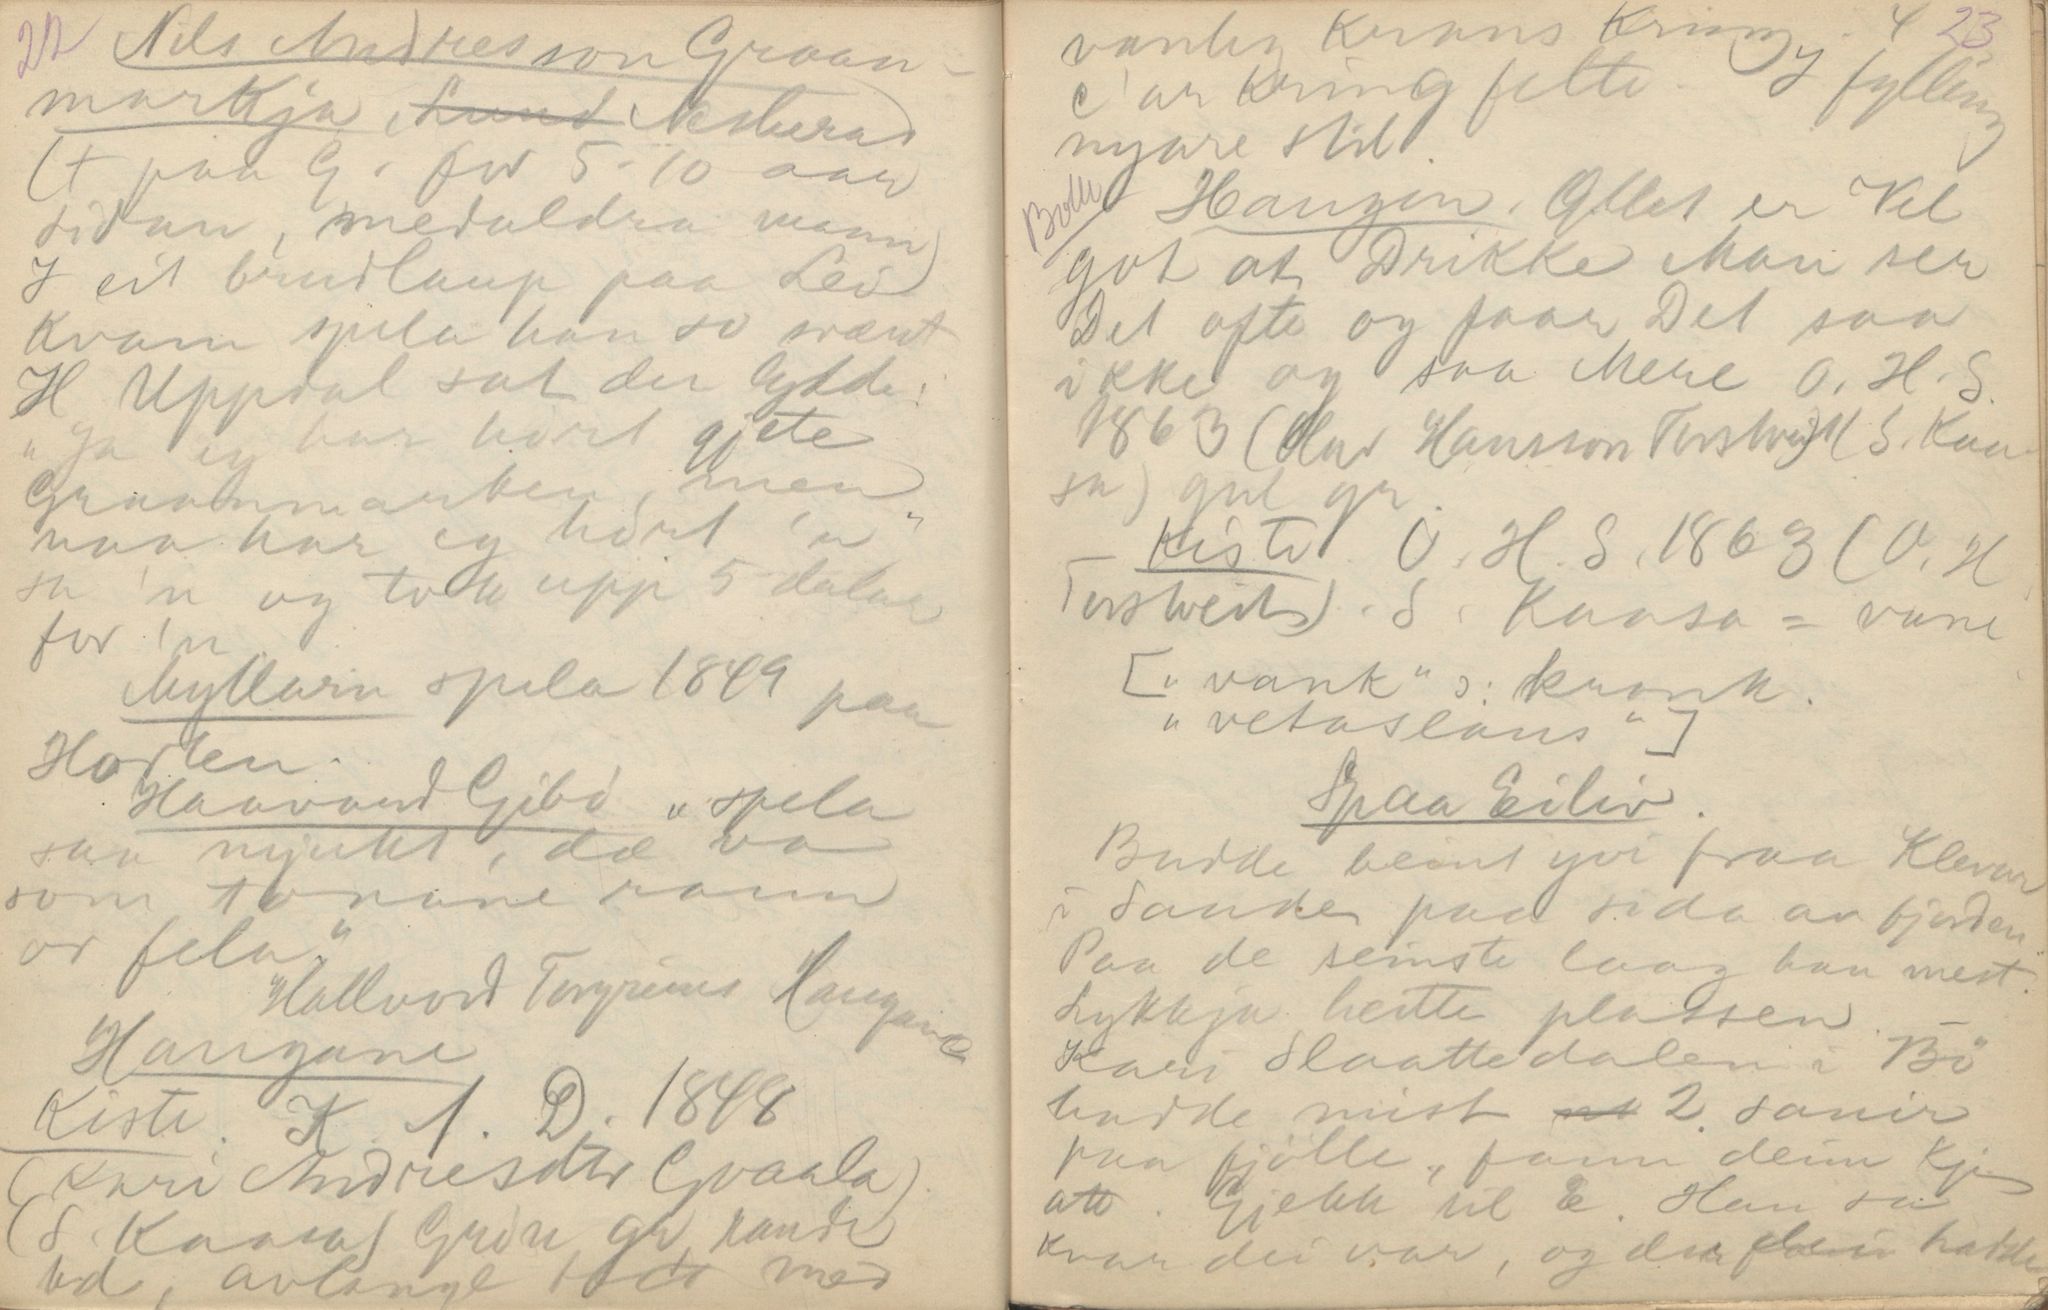 22 Nils Andresson Graan-
markja, Lund Nesherad
(† paa G. for 5-10 aar
sidan, medaldra mann)
I eit brudlaup paa Lei
Kvam spela han so vænt
H Uppdal sat der lydde:
"Ja eg har hórt gjete
Graanmarken, men
naa har eg hórt 'n"
sa 'n og tok upp 5 dalar
for 'n
Myllarn spela 1849 paa
Horten.
Haavard Gibó "spela
saa mjukt, dæ va
som tonane rann
or fela"
Hallvord Torgrims Haugane
Haugane
Kiste. K. A. D. 1848
(Kari Andresdtr Gvaala)
(S. Kaasa) Grón gr. raude
bd, avlangt med
23
vanleg Krans Kring. 4
c'ar kring felte. I fylling
nyare stil.
Bolle Haugen. Ollet er Vel
got at Drikke Man ser
Det ofte og faar Det saa
ikke og saa Mere O. H. S.
1863 (Olav Hansson Torstveit) (S. Kaa-
sa) gul gr.
- Kiste O. H. S. 1863 (O. H
Torstveit). S. Kaasa =
["vank" ɔ: krank.
"vetaslaus"]
Spaa Eiliv.
Budde beint yvi fraa Klevar
i Sande paa sida av fjorden
Paa de seinste laag han mest.
Lykkja heitte plassen
Kari Slaattedalen i Bó
hadde mist 2 sauir
paa fjólle, fann deim Kji
att. Gjekk til E. Han sa
kvar dei var, og der hadde